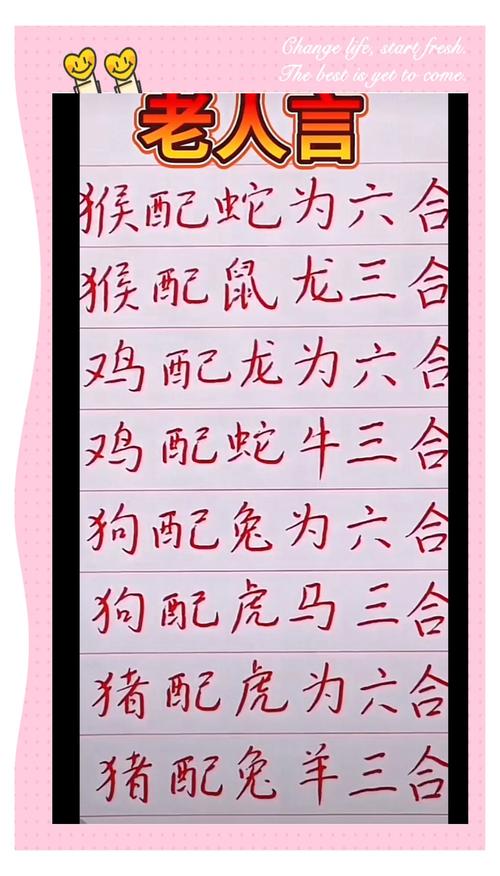 Change life, start fresh.
The best is yet to come.
老人言
猴配蛇为六合
猴配鼠龙三合
鸡配龙为六合
鸡配蛇牛三合
狗配兔为六合
狗配虎马三合
猪配虎为六合
猪配兔羊三合